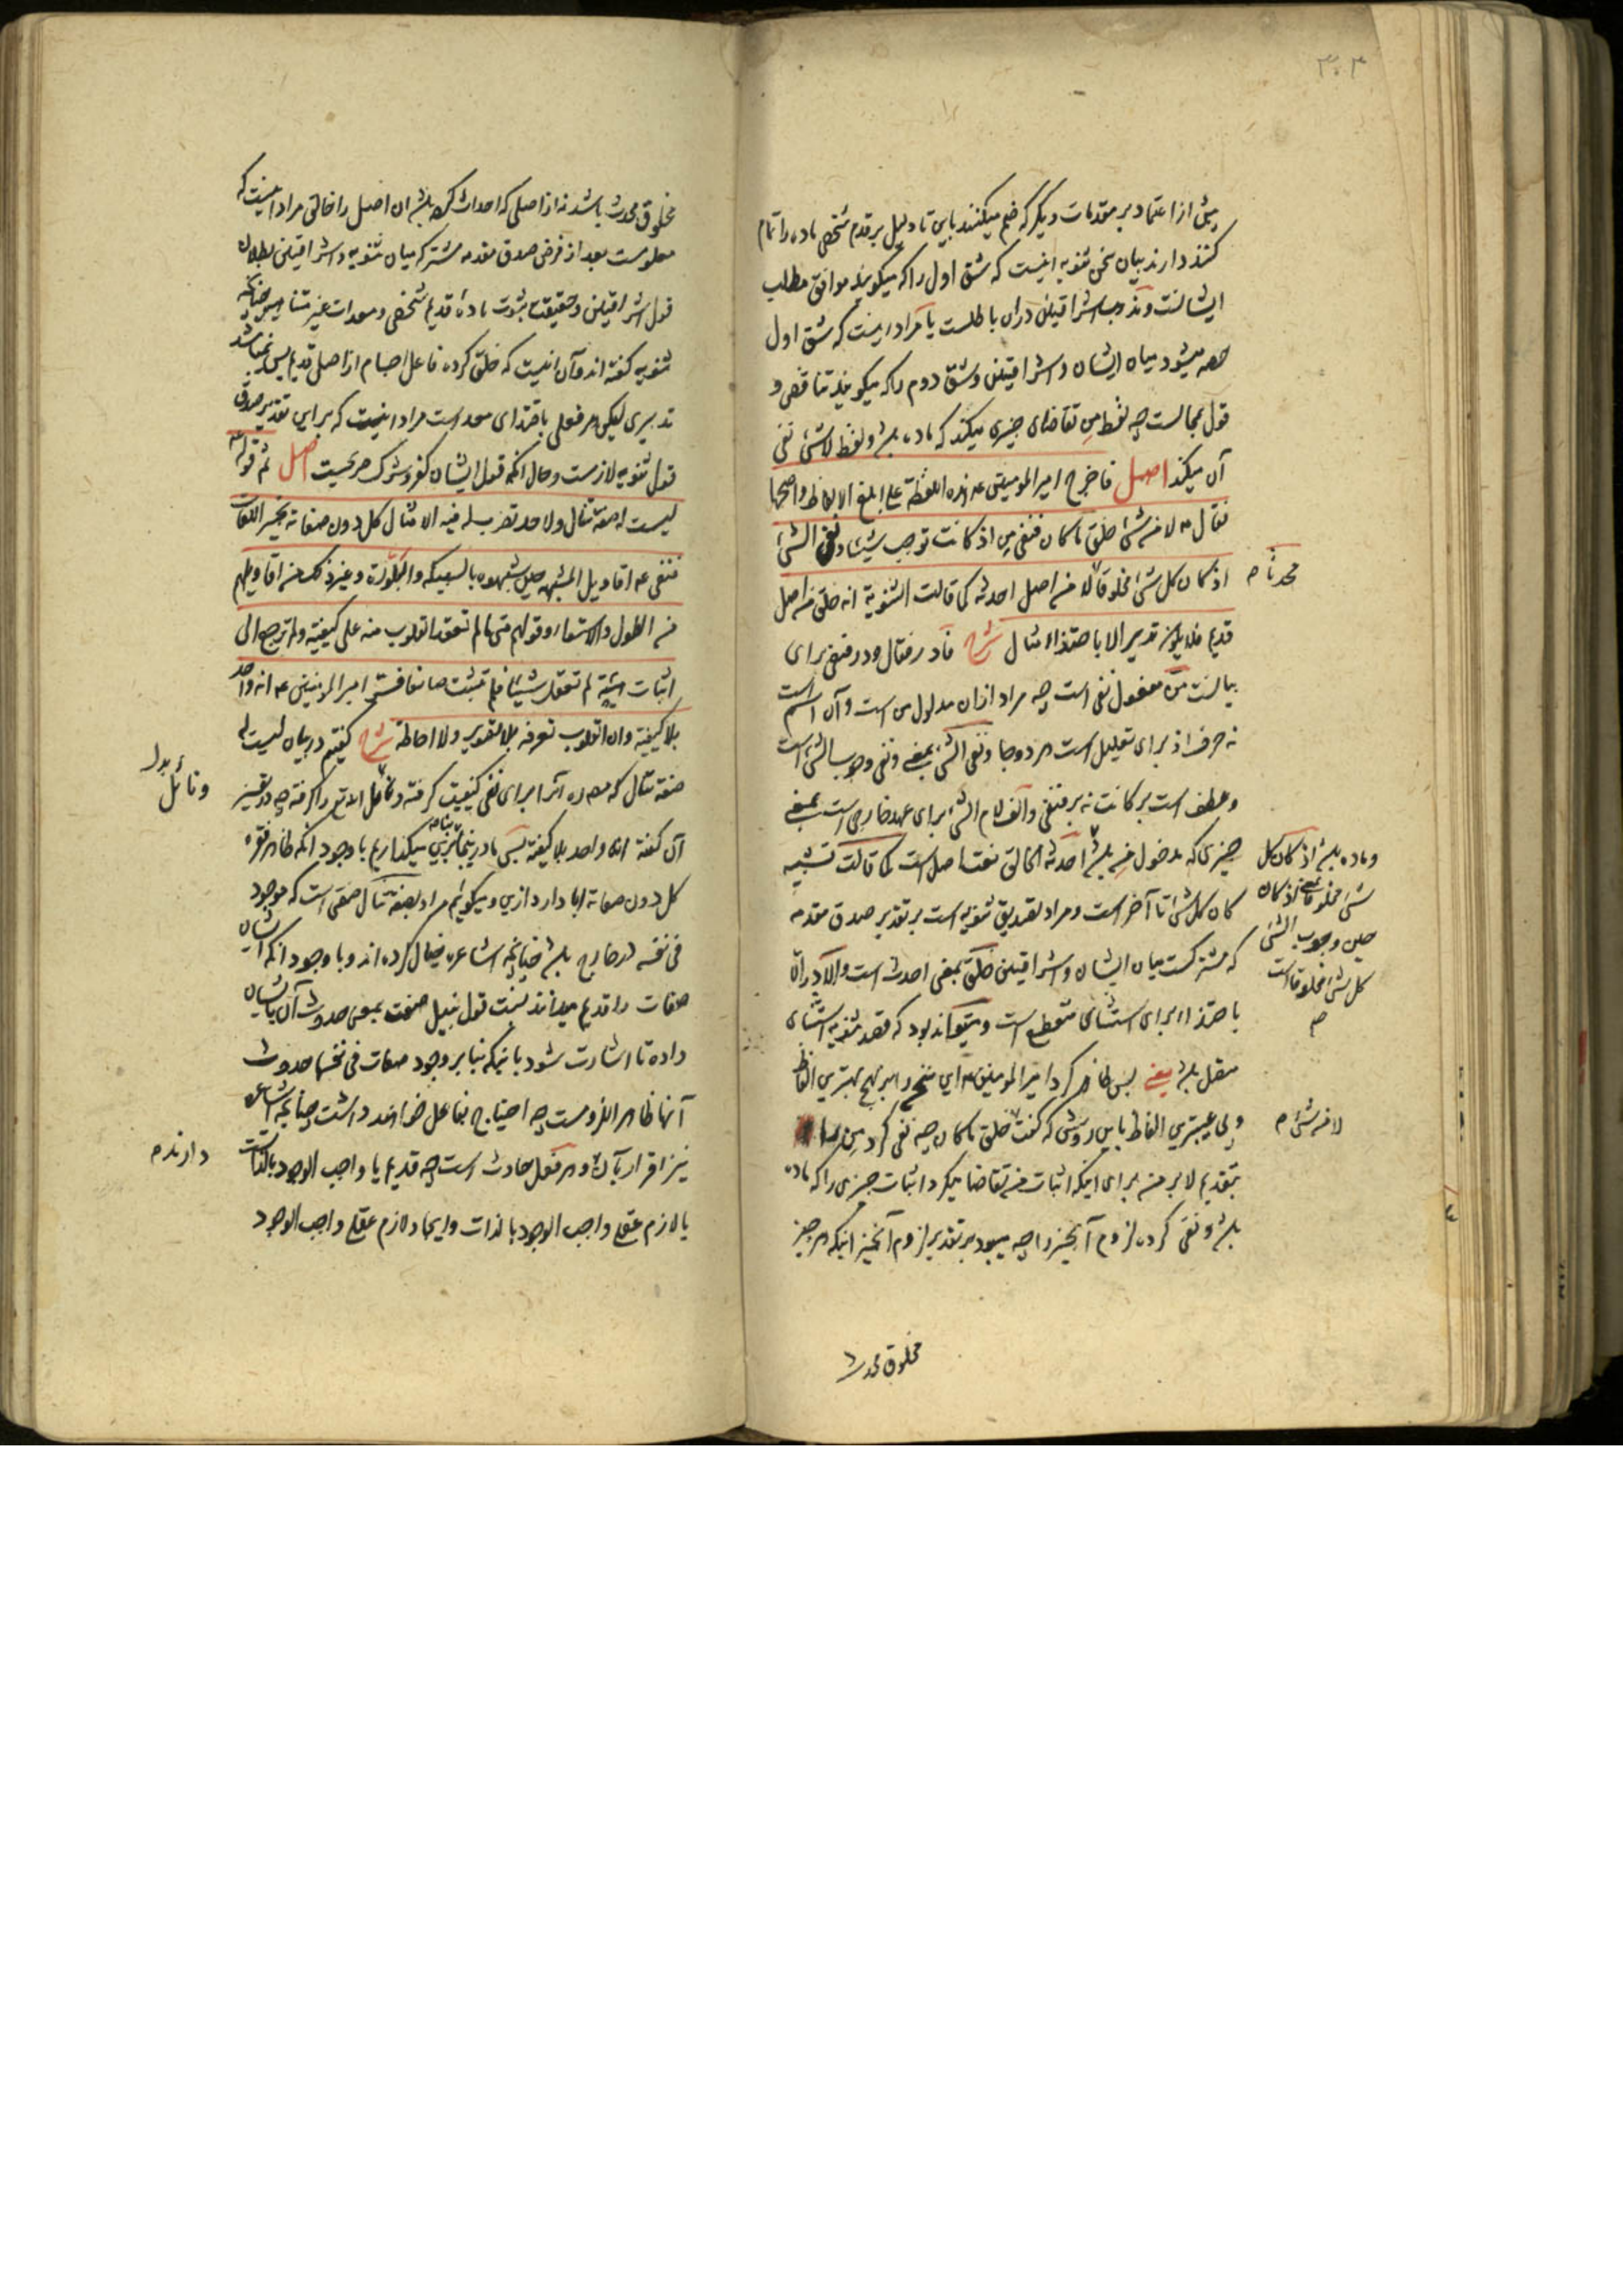 ۳۰۴
پیش از اعتماد بر مقدمات دیگر که ضم میکنند باین تا دلیل بر قدم شخصی ماده را تمام
کنند دارند بیان سخن ثنویه اینست که شق اول را که میکویند موافق مطلب
ایشانست و مذهب اشراقیین دران باطلست یا مراد اینست که شق اول
میشود میان ایشان و اشراقیین و شق دوم را که میکویند تناقض و
قول بمحالست چه لفظ من تقاضای چیزی میکند که ماده باشد و لفظ لاشئ نفی
آن میکند اصل فاخرج امیر المومنین ع هذه اللفظة علی ابلغ الالفاظ واصحها
فقال ع لا من شئ خلق ما کان فنفی من اذ کانت توجب شیئا و نفی الشئ
اذ کان کل شئ مخلوقا لا من اصل احدثه کما قالت الثنویة انه خلق من اصل
محدثا م
قدیم فلا یکون تدبیر الا باحتذاء مثال شرح فا در فقال و در فنفی برای
بیانست من مفعول نفی است چه مراد ازان مدلول من است و آن اسم است
نه حرف اذ برای تعلیل است هر دو جا و نفی الشئ بمعنی و نفی وجوب الشئ است
و عطف است بر کانت نه بر فنفی و الف لام الشئ برای عهد خارجی است بمعنی
چیزی که مدخول من باشد احدثه الخالق نعت اصل است کما قالت تشبیه
و ماده باشد اذ کان کل
شئ مخلوقا یعنی اذ کان
حین وجوب الشئ
کل شئ مخلوقا است
م
کان کل شئ تا آخر است و مراد تصدیق ثنویه است بر تقدیر صدق مقدمه
که مشترکست میان ایشان و اشراقیین خلق بمعنی احدث است و الا در الا
باحتذاء برای استثنای منقطع است و میتواند بود که قصد ثنویه استثنای
متصل باشد یعنی پس ظاهر کرد امیر المومنین ع این سخن را بر نهج بهترین الفاظ
و بی عیبترین الفاظ باین روش که گفت خلق ما کان چه نفی کرد من را
لا من شئ م
بتقدیم لا بر من برای اینکه اثبات من تقاضا میکرد اثبات چیزی را که ماده
باشد و نفی کرده لزوم آنچیز را چه میبود بر تقدیر لزوم آنچیز اینکه هر چیز
مخلوق محدث
مخلوق محدث باشد نه از اصلی که احداث کرده باشد ان اصل را خالق مراد اینست که
معلومست بعد از فرض صدق مقدمه مشترکه میان ثنویه و اشراقیین بطلان
قول اشراقیین و حقیقت ثبوت ماده قدیم شخصی و معدات غیر متناهیه چنانکه
ثنویه گفته اند و آن اینست که خلق کرده فاعل اجسام از اصل قدیم پس نمیباشد
تدبیری لیکن هر فعلی باحتذای معد است مراد اینست که بر این تقدیر صدق
قول ثنویه لازمست و حال انکه قول ایشان کفر و شرک صریحست اصل ثم قوله ع
لیست له صفة تنال ولا حد تضرب له فیه الامثال کل دون صفاته تحبیر اللغات
فنفی ع اقاویل المشبهة حین شبهوه بالسبیکة والبلورة وغیر ذلک من اقاویلهم
من الطول والاستواء وقولهم متی ما لم تعقد القلوب منه علی کیفیة ولم ترجع الی
اثبات هیئة لم تعقل شیئا فلم تثبت صانعا ففسر امیر المومنین ع انه واحد
بلا کیفیة وان القلوب تعرفه بلا تصویر ولا احاطة شرح گفتیم در بیان لیست له
صفة تنال که مصنف ره آنرا برای نفی کیفیت گرفته و
و نائل بدل
آن گفته انه واحد بلا کیفیة پس ما درینجا بنابرین میگذاریم با وجود انکه ظاهر فقره
کل دون صفاته ابا دارد ازین و میکوئیم مراد بصفة تنال صفتی است که موجود
فی نفسه در خارج باشد چنانچه اشاعره خیال کرده اند و با وجود انکه ایشان
صفات را قدیم میدانند نسبت قول بنیل صفت بمعنی حدوث آن بایشان
داده تا اشارت شود باینکه بنا بر وجود صفات فی نفسها حدوث
آنها ظاهر اللزومست چه احتیاج بفاعل خواهند داشت چنانچه اشاعره
نیز اقرار بآن و هر فعل حادث است چه قدیم یا واجب الوجود بالذات است
دارند م
یا لازم عقلی واجب الوجود بالذات و ایجاد لازم عقلی واجب الوجود